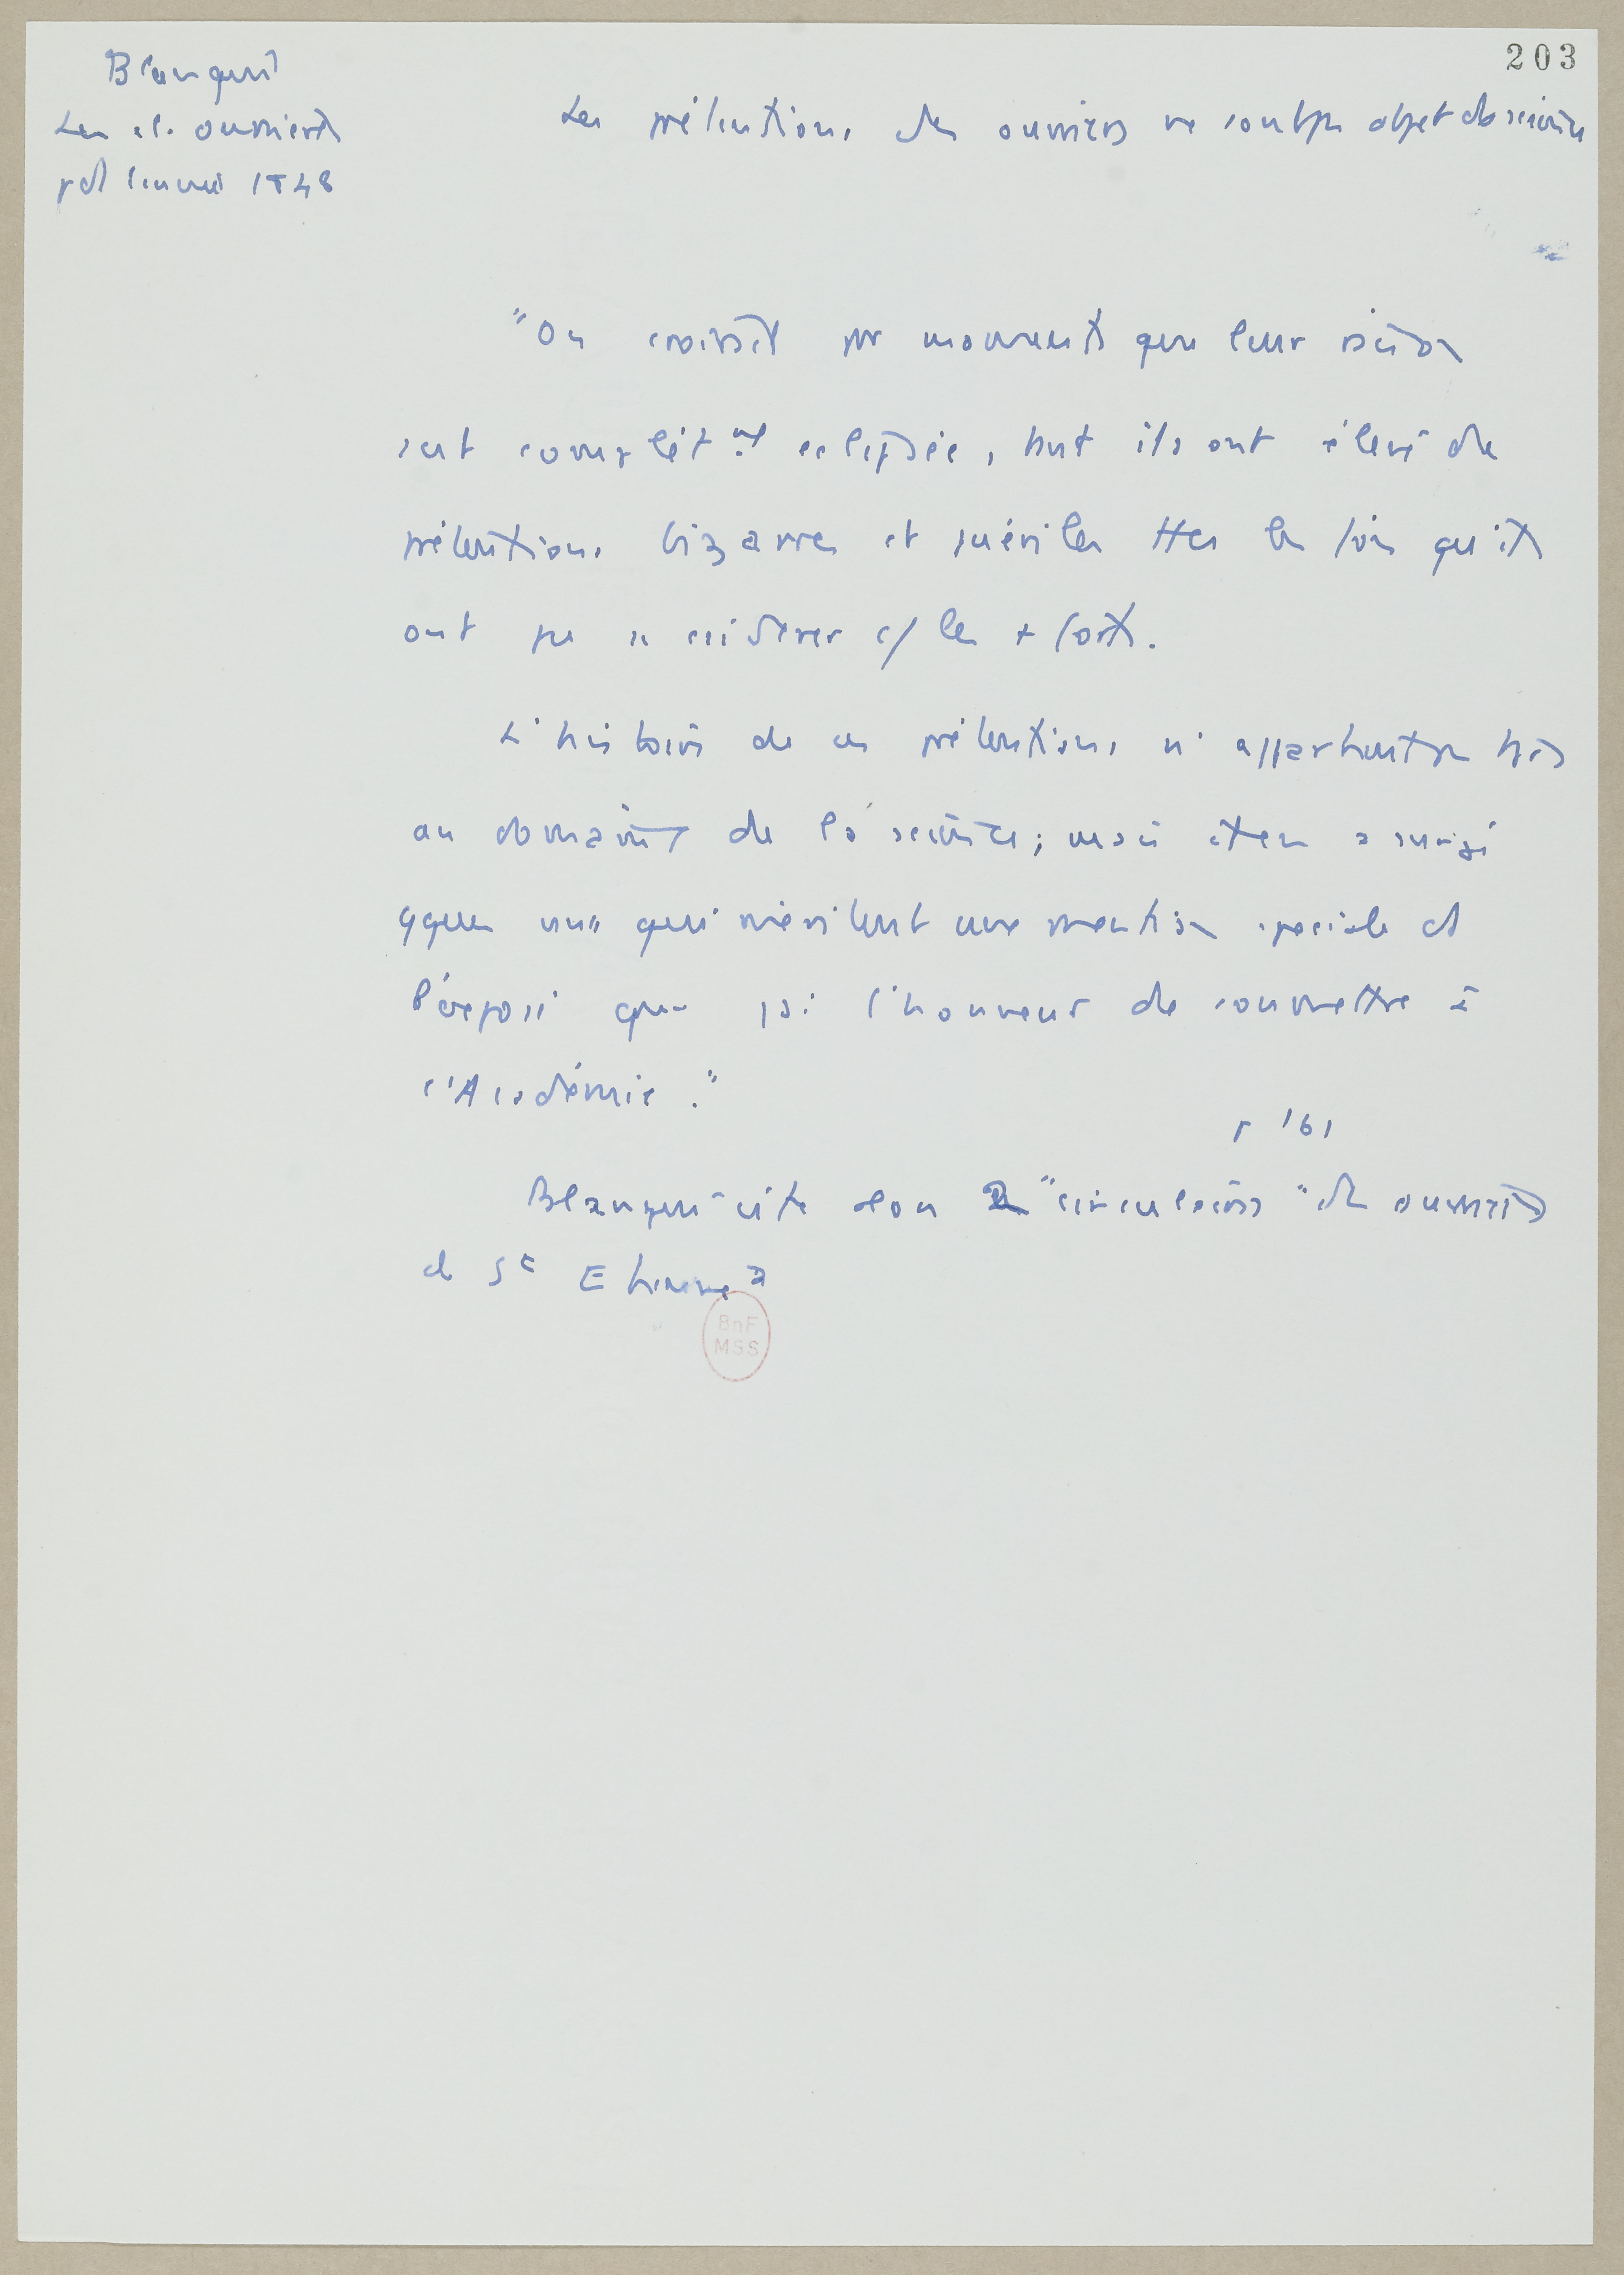 203
Blanqui
Les cl. ouvrières
pdt l'année 1848
Les prétentions des ouvriers ne sont pas objet de science
"On croirait par moments que leur raison
s'est complètmt eclipsée, tant ils ont élevé de
prétentions bizarres et puériles ttes les fois qu'ils
ont pu se considérer c/ les + forts.
L'histoire de ces prétentions n'appartient pas
au domaine de la science; mais il en a surgi
qques unes qui méritent une mention speciale ds
l'exposé que j'ai l'honneur de soumettre à
l'Académie."
p 161
Blanqui cite alors "circulaires" des ouvriers
de St Etienne
BnF
MSS